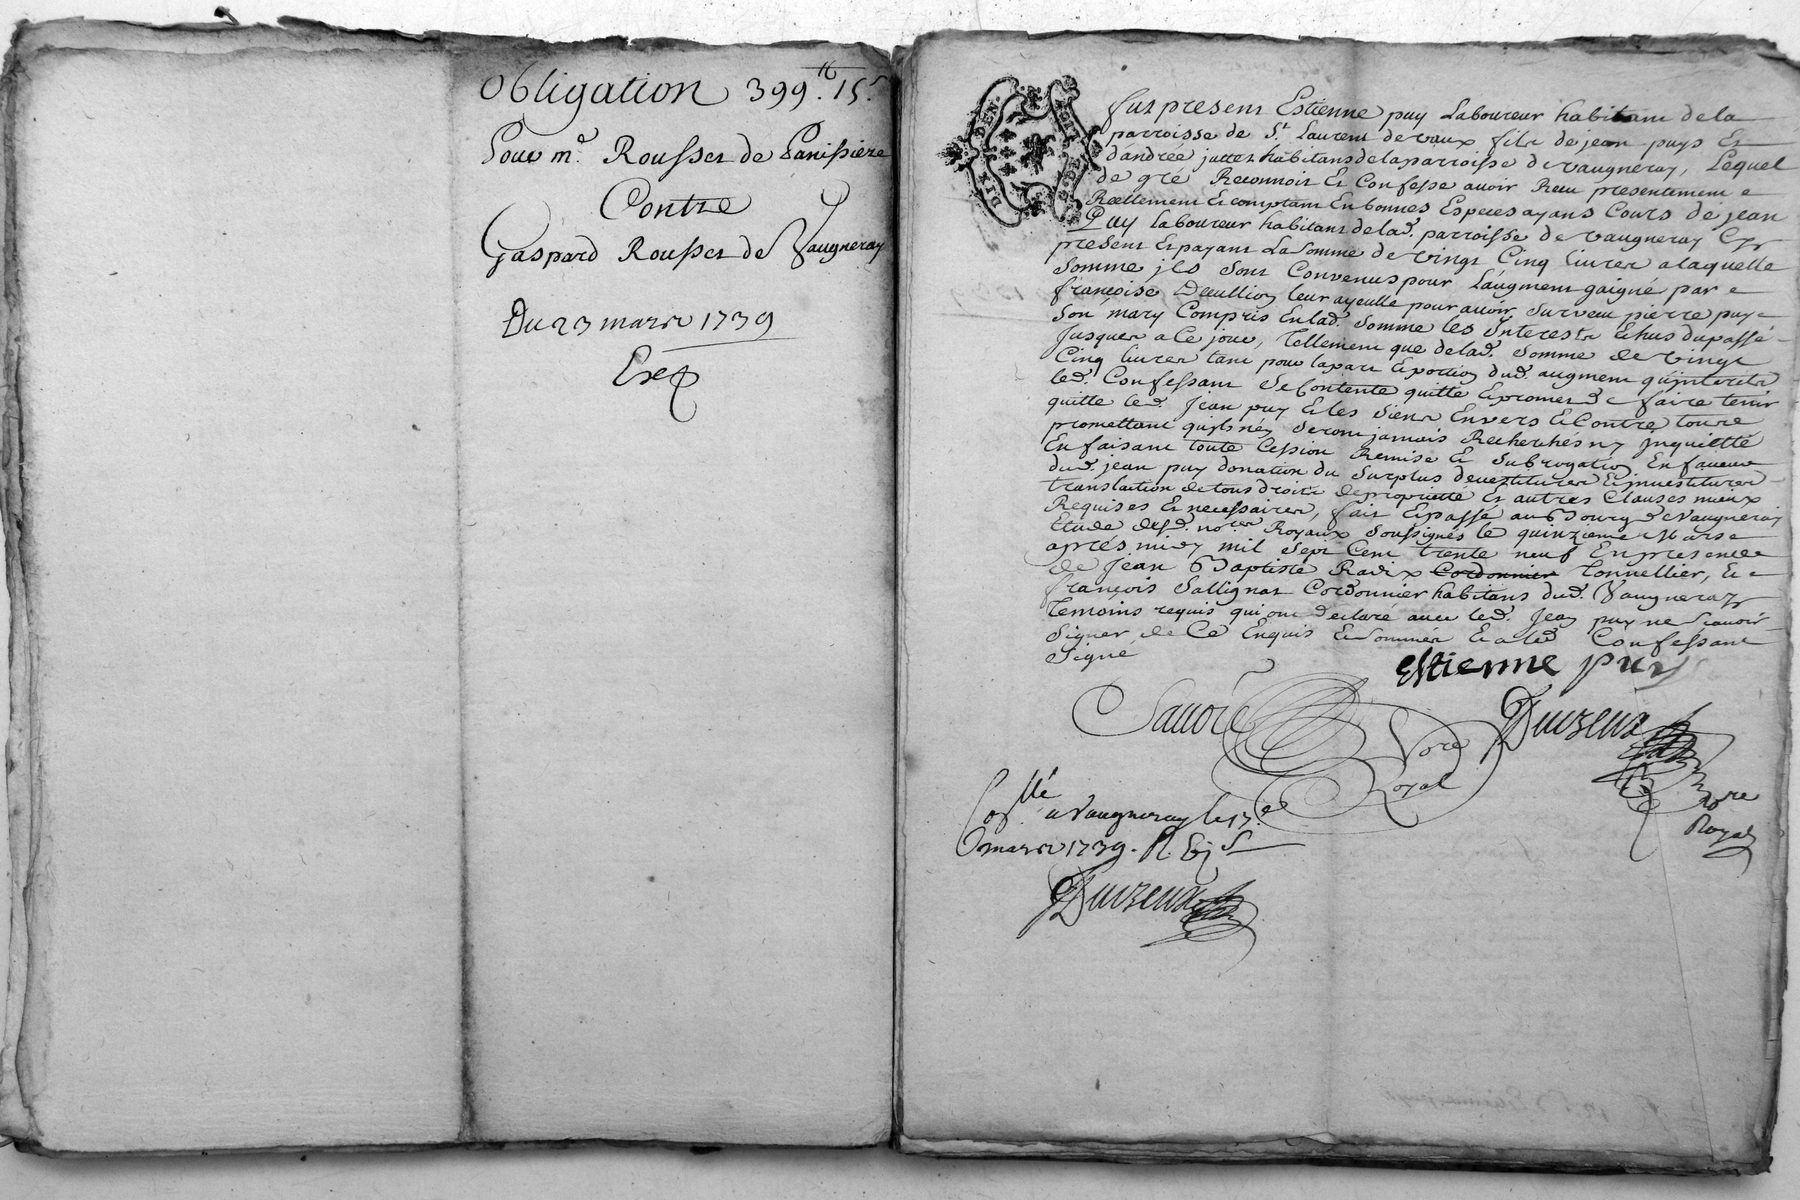 Obligation 399.tt 15.s
Pour mr. Rousset de Panissiere
Contre
Gaspard Rousset de Vaugneray
Du 23 mars 1739
Exp
DIX DEN.
fut present Estienne puy Laboureur habitant de la
parroisse de St. Laurent de vaux fils de jean puys Et
d'andrée juttet habitans de la parroisse de vaugneray, Lequel
de gré Reconnoit Et Confesse avoir Receu presentement
Réellement Et comptant En bonnes Especes ayans Cours de jean
Puy Laboureur habitant de lad. parroisse de vaugneray Cy
present Et payant La Somme de vingt Cinq livres a laquelle
Somme ils sont Convenus pour L'augment gaigné par
françoise leur ayeulle pour avoir Surveu pierre puy
Son mary Compris En lad. Somme les Interests Echus du passé
Jusques a Ce jour, Tellement que de lad. Somme de vingt
Cinq livres tant pour la part Et portion dud. augment qu'interets
led. Confessant Se Contente quitte Et promet de faire tenir
quitte led. Jean puy Et les Siens Envers Et Contre toure
promettant qu'ils n'en Seront jamais Recherchés ny Inquietté
En faisant toute Cession Remise Et Subrogation En faveur
dud. jean puy donation du Surplus devestitures Et investitures
translation de tous droits de proprietté Et autres Clauses mieux
Requises Et necessaires, fait Et passé au Bourg de Vaugneray
Etude desd. notres Royaux Soussignés le quinzieme Mars
aprés midy mil Sept Cent trente neuf En presence
de Jean Baptiste Radix Cordonnier Tonnellier, Et
françois Sallignat Cordonnier habitans dud. Vaugneray
temoins requis qui ont declaré avec led. Jean puy ne Scavoir
Signer de Ce Enquis Et Sommés Et a led. Confessant
Signé
Estienne puy
Savoie Nore Royal
Duvzeux Nore Royal
Coллé a Vaugneray le 17.e
mars 1739. R. 6 s